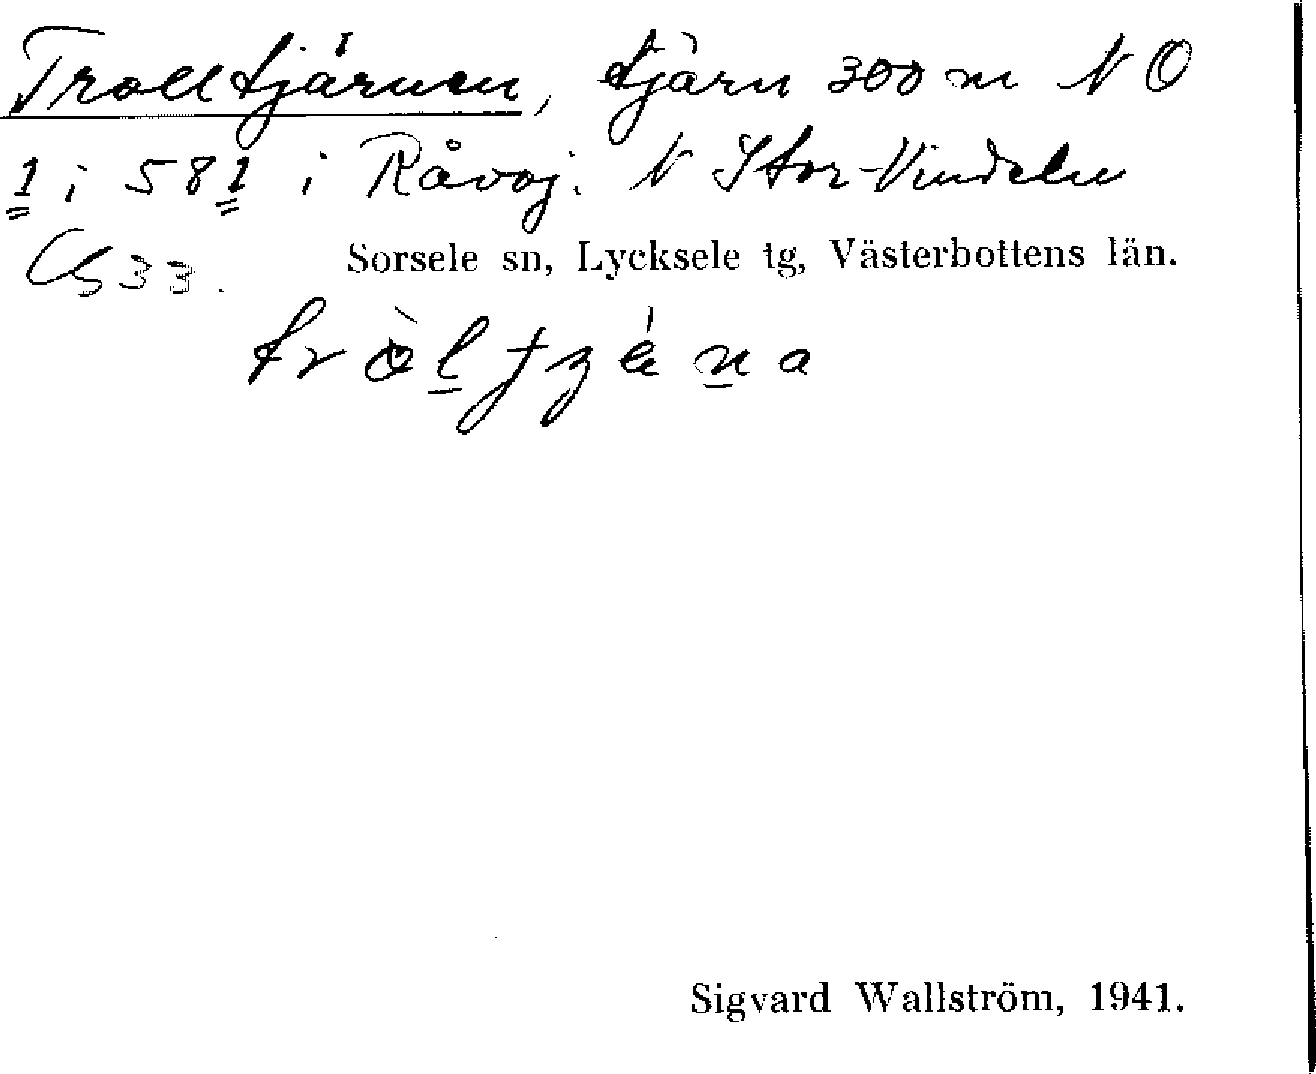 Trolltjärnen, tjärn 300 m NO
1 i 581 i Råvoj. N Stor-Vindeln
33.
Sorsele sn, Lycksele tg, Västerbottens län.
Sigvard Wallström, 1941.